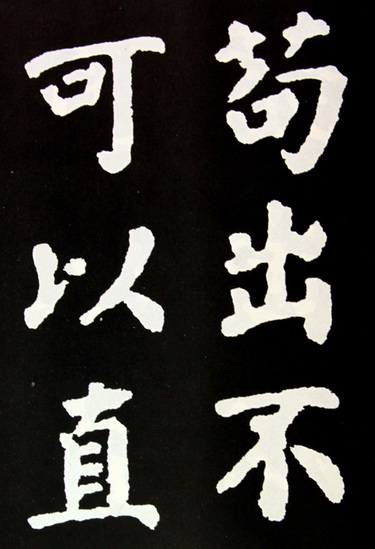 苟出不
可以直